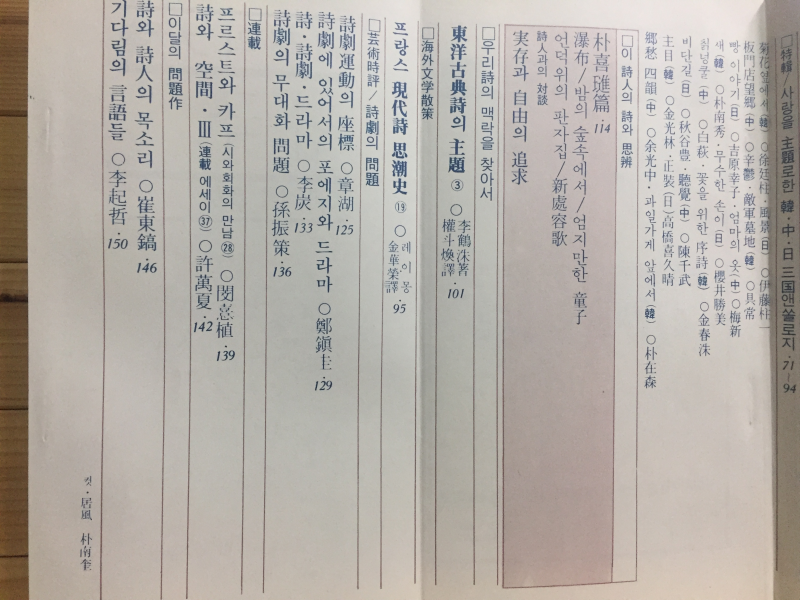 □特輯/사랑을 主題로한 韓·中·日 三国앤쏠로지·71~94
菊花옆에서(韓) ○徐廷柱·風景(日) ○伊藤柱一
板門店望郷(中) ○辛鬱·敵軍墓地(韓) ○具常
빵 이야기(日) ○吉原幸子·엄마의 옷(中) ○梅新
새(韓) ○朴南秀·무수한 손이(日) ○櫻井勝美
칡넝쿨(中) ○白萩·꽃을 위한 序詩(韓) ○金春洙
비단길(日) ○秋谷豊·聽覺(中) ○陳千武
主日(韓) ○金光林·正装(日) 高橋喜久晴
郷愁 四韻(中) ○余光中·과일가게 앞에서(韓) ○朴在森
□이 詩人의 詩와 思辨
朴喜璡篇·114
瀑布/밤의 숲속에서/엄지만한 童子
언덕위의 판자집/新處容歌
詩人과의 対談
実存과 自由의 追求
□우리詩의 맥락을 찾아서
東洋古典詩의 主題 ③ ○李鶴洙著 權斗煥譯·101
□海外文学散策
프랑스 現代詩 思潮史 ⑲ ○레이몽 金華榮譯·95
□芸術時評/詩劇의 問題
詩劇運動의 座標 ○章湖·125
詩劇에 있어서의 포에지와 드라마 ○鄭鎭圭·129
詩·詩劇·드라마 ○李炭·133
詩劇의 무대화 問題 ○孫振策·136
□連載
프르스트와 카프(시와회화의 만남 ㉘) ○閔憙植·139
詩와 空間·Ⅲ(連載 에세이 ㊲) ○許萬夏·142
□이달의 問題作
詩와 詩人의 목소리 ○崔東鎬·146
기다림의 言語들 ○李起哲·150
컷·居風 朴南奎